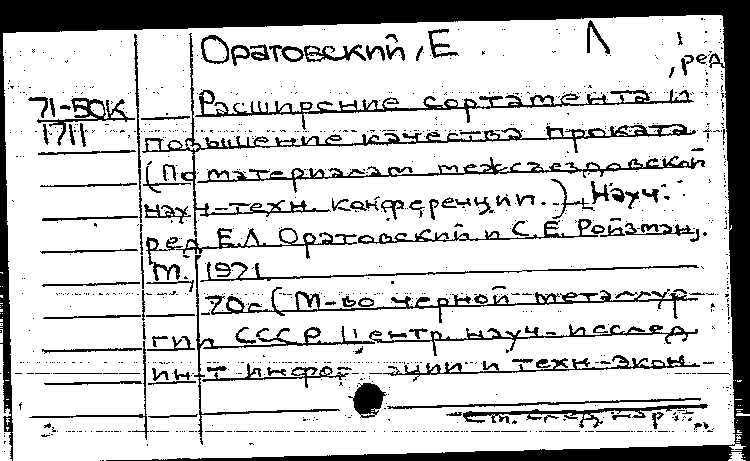 Оратовский, Е. Л
, ред
71-50К Расширение сортамента и
1711 повышение качества проката
(По материалам межзаводской
науч-техн. конференции.) Науч.
ред. Е.Л. Оратовский и С.Е. Ройзман.
М., 1971.
70с (М-во черной металлур-
гии СССР. Центр. науч-исслед.
ин-т информации и техн-экон.
См. след. карт.